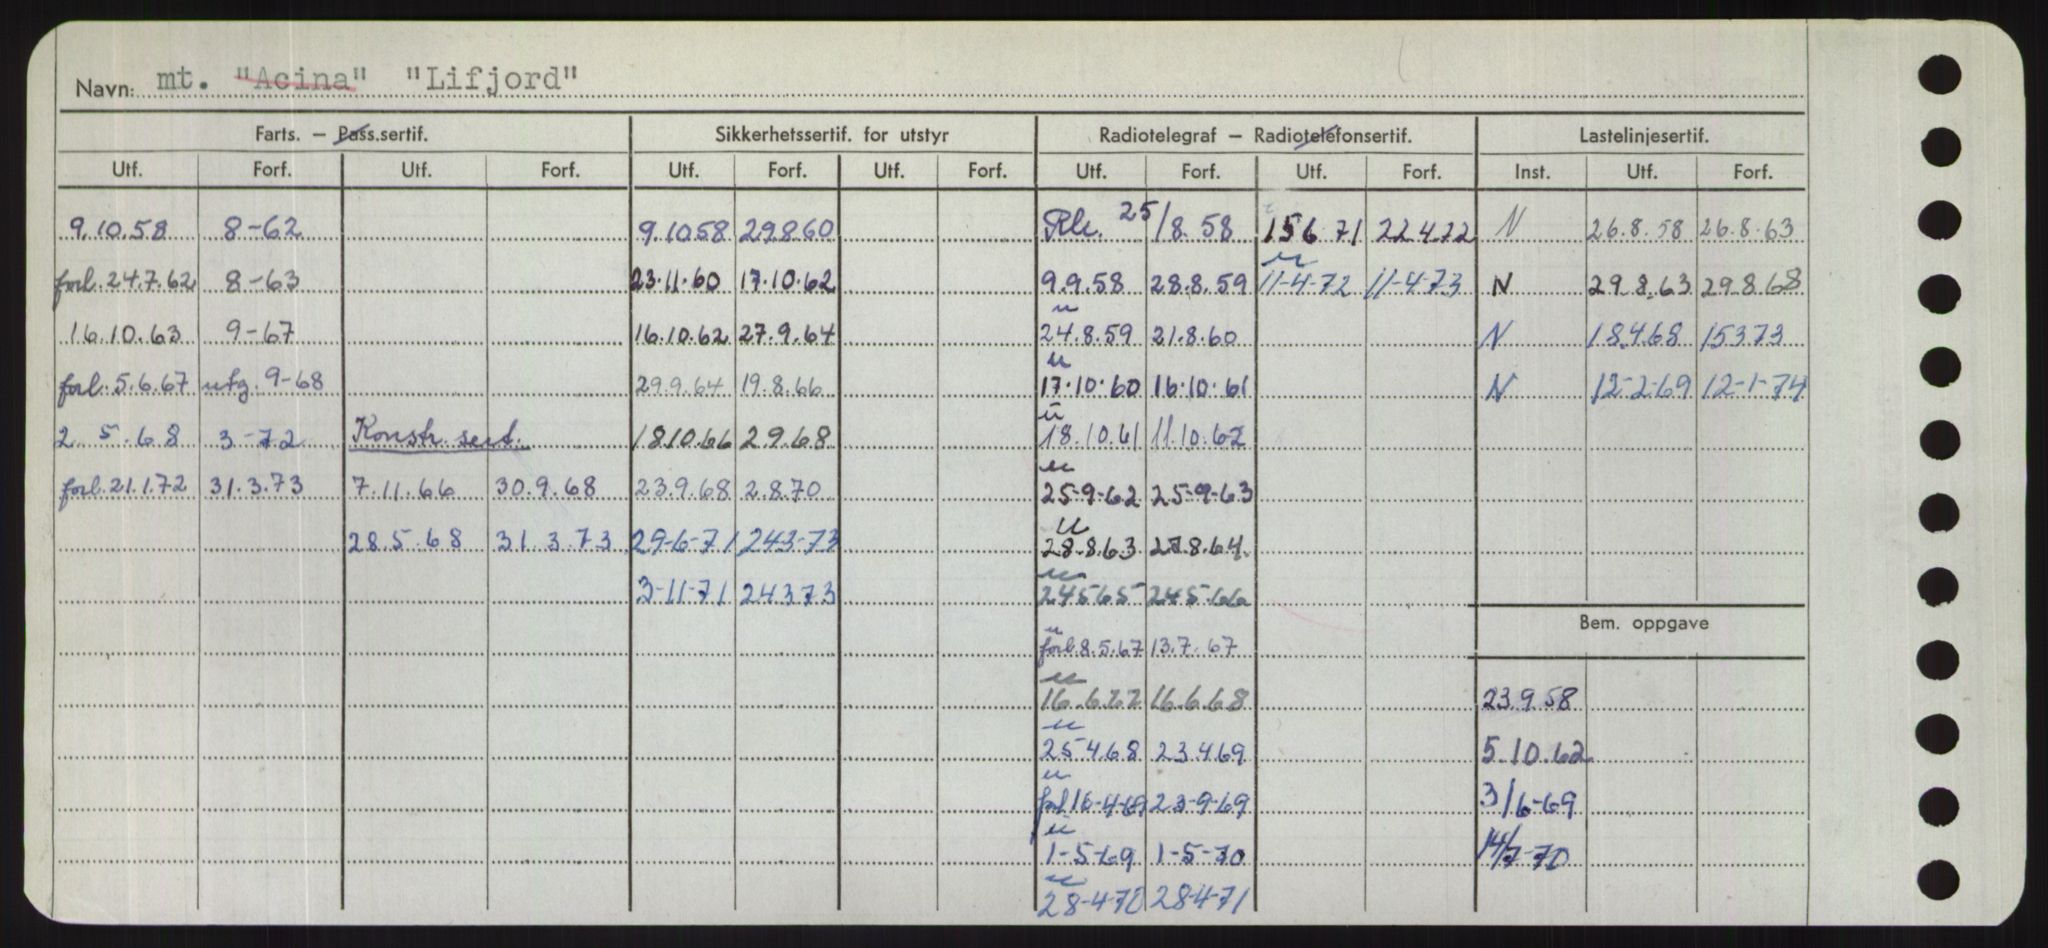 Navn: mt. "Acina" "Lifjord"
Farts. — Pass.sertif. Sikkerhetssertif. for utstyr Radiotelegraf — Radiotelefonsertif. Lastelinjesertif.
Utf. Forf. Utf. Forf. Utf. Forf. Utf. Forf. Utf. Forf. Utf. Forf. Inst. Utf. Forf.
9.10.58 8-62 9.10 58 29 8 60 25/8.58 15 6 71 22 4.72 N 26.8.58 26.8.63
forl. 24.7.62 8-63 23.11.60 17.10.62 9.9.58 28.8.59 11-4-72 11-4-73 N 29.8.63 29.8.68
16.10.63 9-67 16.10.62 27.9.64 24.8.59 21.8.60 N 18.4.68 15 3 73
forl. 5.6.67 utg. 9-68 29.9.64 19.8.66 17.10.60 16.10.61 N 12-2-69 12-1-74
2 5.68 3-72 Konstr. sert. 18.10.66 2.9.68 18.10.61 11.10.62
forl. 21.1.72 31.3.73 7.11.66 30.9.68 23.9.68 2.8.70 25-9-62 25-9-63
28.5.68 31.3.73 29-6-71 24 3-73 28.8.63 27.8.64
3-11-71 24 3 73 24 5 65 24 5.66
Bem. oppgave
forl. 8.5.67 13.7.67
16.6.67 16.6.68 23.9.58
25 4.68 23 4.69 5.10.62
forl 16-4-69 23-9-69 3/6-69
1-5-69 1-5-70 14/7-70
28-4-70 28-4-71